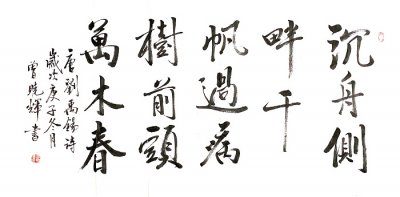 沉舟側
畔千
帆過病
樹前頭
萬木春
唐劉禹錫詩
歲次庚子冬月
曾曉輝書